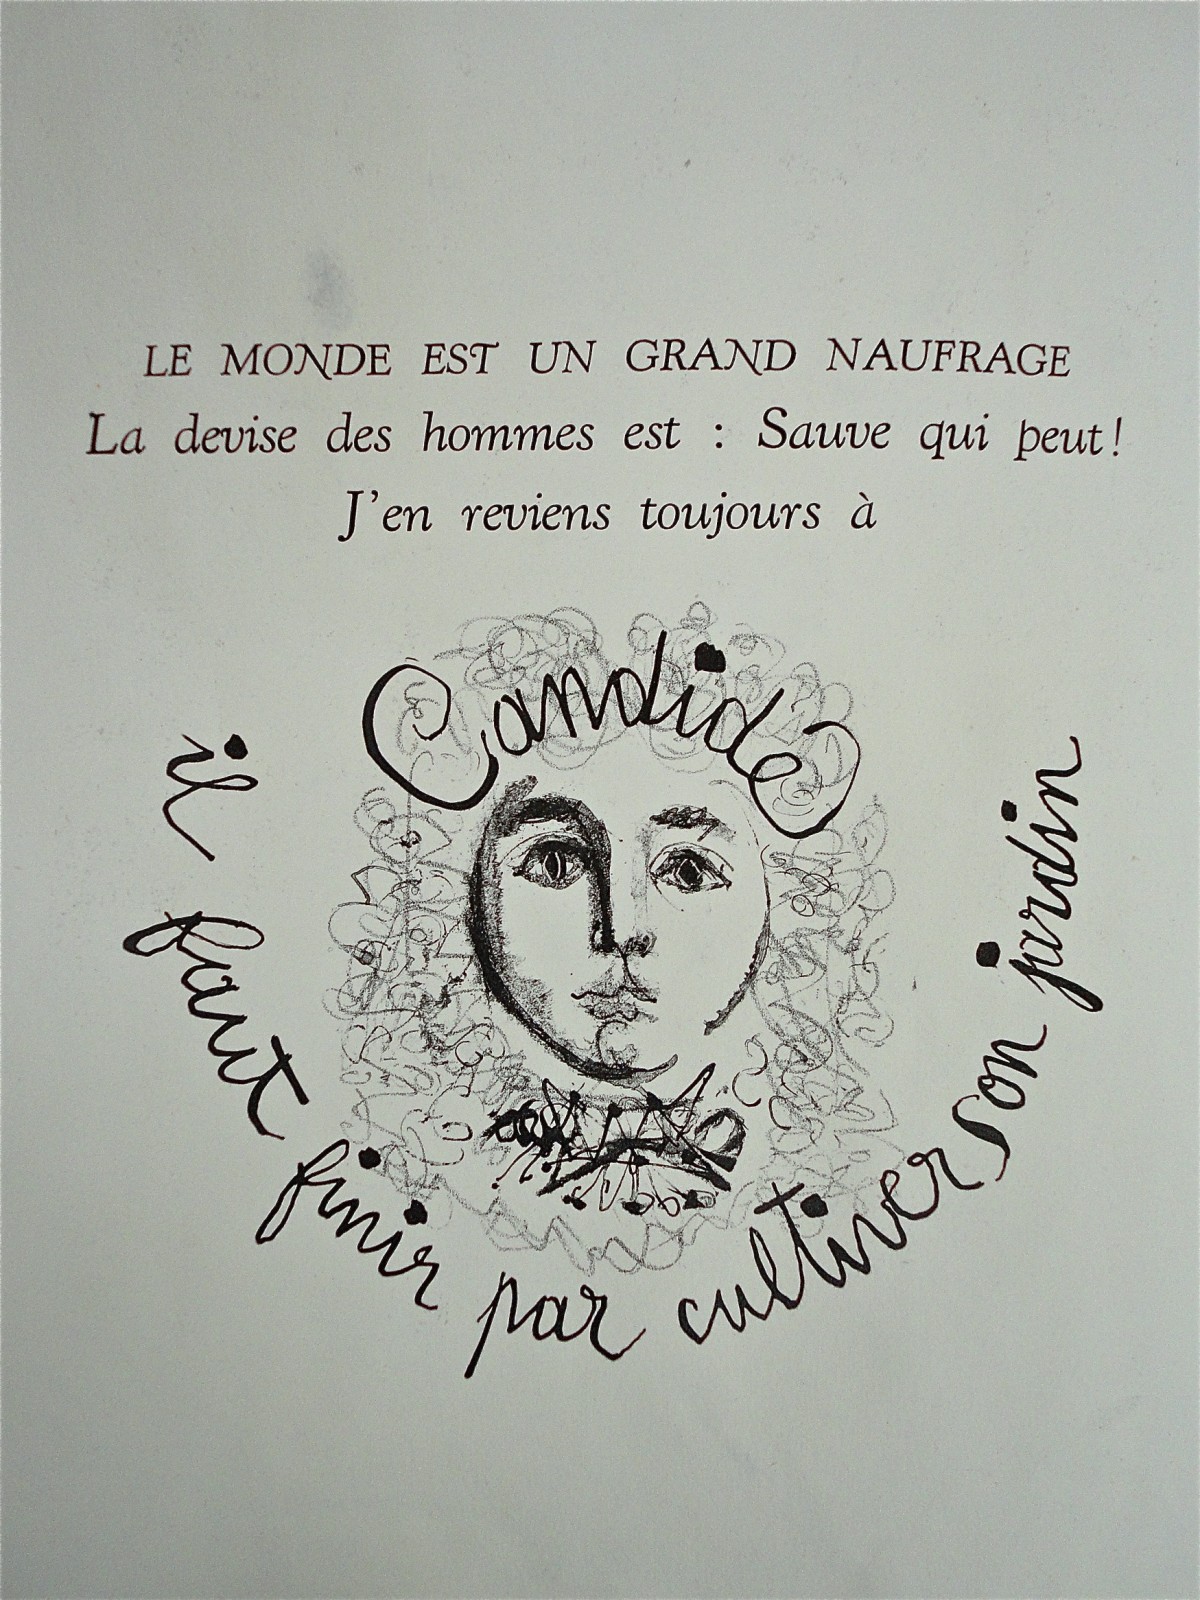 LE MONDE EST UN GRAND NAUFRAGE
La devise des hommes est : Sauve qui peut !
J'en reviens toujours à
Candide
il faut finir par cultiver son jardin